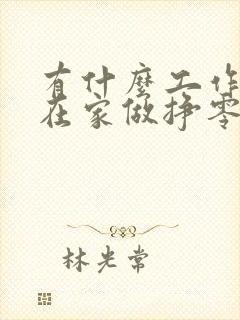 有什麼工作
在家做掙零
林光常